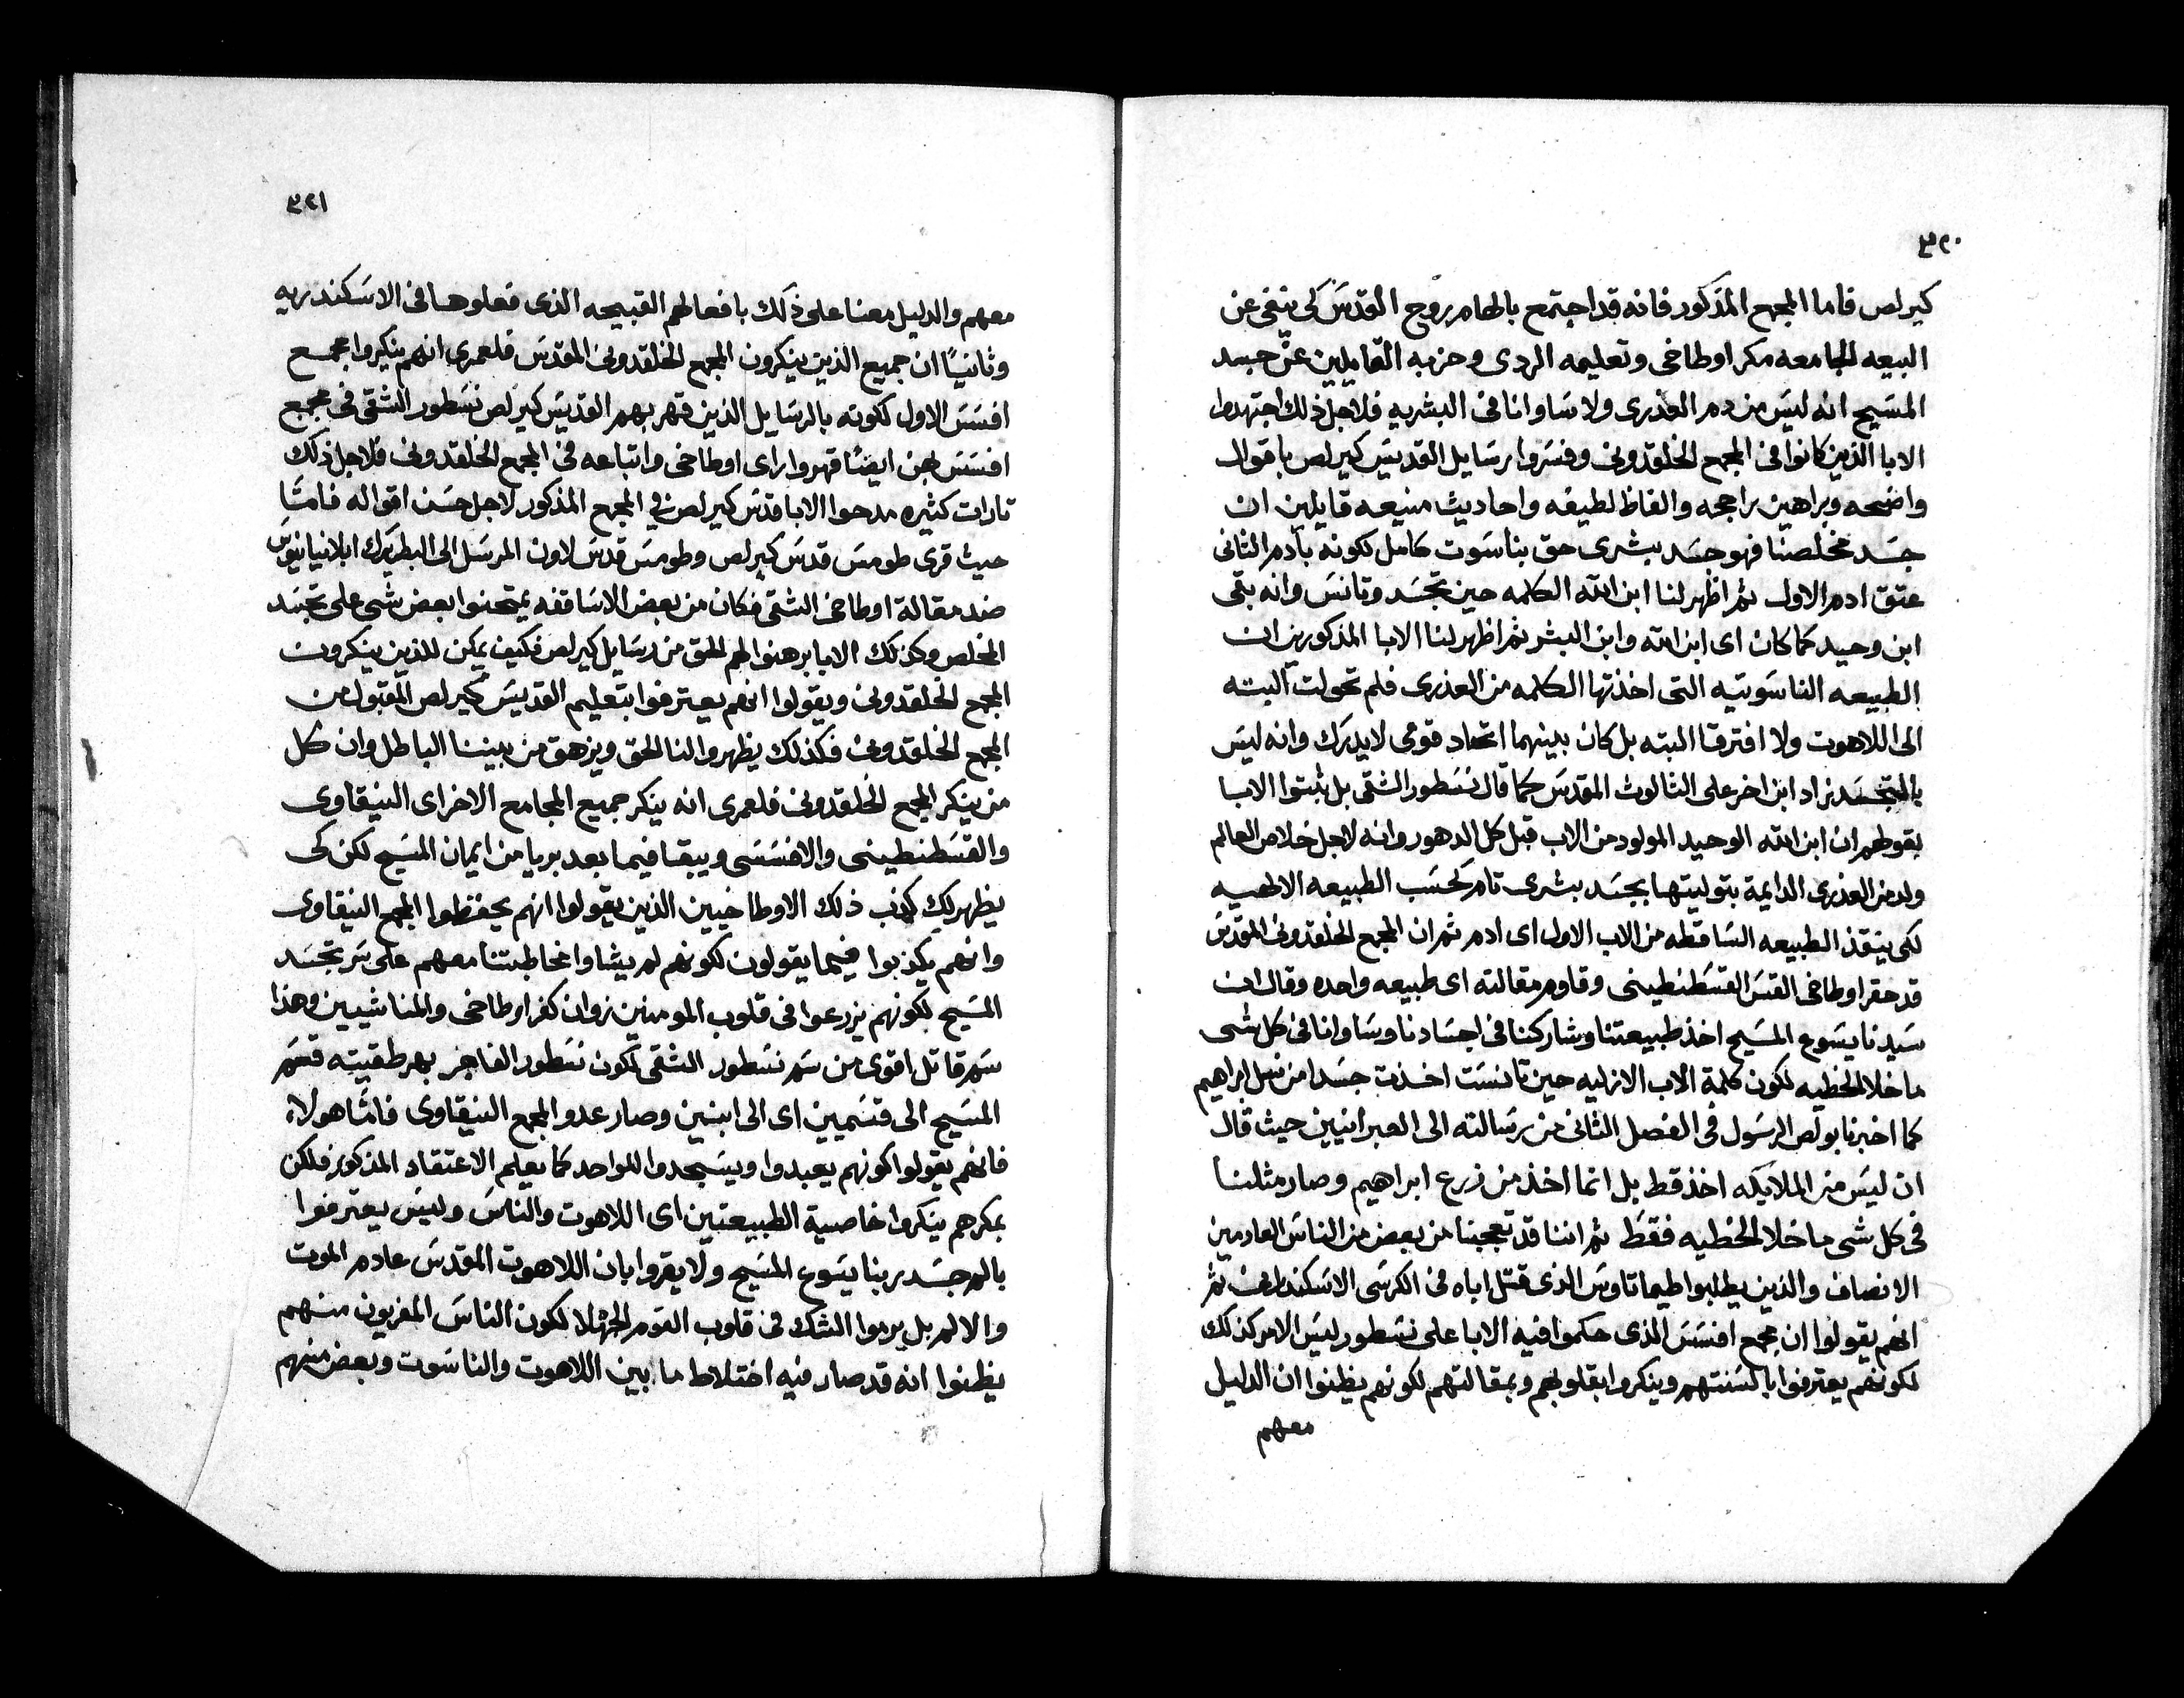 ٣٢٠
كيرلص فاما المجمع المذكور فانه قد اجتمع بالهام روح القدس لكى ينفى عن
البيعه الجامعه مكر اوطاخى وتعليمه الردى وحزبه القايلين عن جسد
المسيح انه ليس من دم العذرى ولا ساوانا فى البشريه فلاجل ذلك اجتهدوا
الابا الذين كانوا فى المجمع الخلقدونى وفسروا رسايل القديس كيرلص باقوال
واضحه وبراهين راجحه والفاظ لطيفه واحاديث منيعه قايلين ان
جسد مخلصنا فهو جسد بشرى حق بناسوت كامل لكونه بآدم الثانى
عتق ادم الاول ثم اظهر لنا ابن الله الكلمه حين تجسد وتانس وانه بقى
ابن وحيد كما كان اى ابن الله وابن البشر ثم اظهر لنا الابا المذكورين ان
الطبيعه الناسوتيه التى اخذتها الكلمه من العذرى فلم تحولت البته
الى اللاهوت ولا افترقا البته بل كان بينهما اتحاد قومى لا يدرك وانه ليس
بالتجسد زاد ابن اخر على الثالوث المقدس كما قال نسطور الشقى بل ثبتوا الابا
بقولهم ان ابن الله الوحيد المولود من الاب قبل كل الدهور وانه لاجل خلاص العالم
ولد من العذرى الدايمة بتوليتها بجسد بشرى تام كحسب الطبيعه الالهيه
لكى ينقذ الطبيعه الساقطه من الاب الاول اى ادم ثم ان المجمع الخلقدونى المقدس
قد حقر اوطاخى القس القسطنطينى وقاوم مقالته اى طبيعه واحده وقال ان
سيدنا يسوع المسيح اخذ طبيعتنا وشاركنا فى اجسادنا وساوانا فى كل شى
ما خلا الخطيه لكون كلمة الاب الازليه حين تانست اخذت جسدا من نسل ابراهيم
كما اخبرنا بولص الرسول فى الفصل الثانى من رسالته الى العبرانيين حيث قال
ان ليس من الملايكه اخذ قط بل انما اخذ من زرع ابراهيم وصار مثلنا
فى كل شى ما خلا الخطيه فقط ثم اننا قد تعجبنا من بعض من الناس العادمين
الانصاف والذين يطلبوا طيماتاوس الذى قتل اباه فى الكرسى الاسكندرانى ثم
انهم يقولوا ان مجمع افسس الذى حكموا فيه الابا على نسطور ليس الامر كذلك
لكونهم يعترفوا بالسنتهم وينكروا بقلوبهم وبمقالتهم لكونهم يظنوا ان الدليل
معهم
٣٢١
معهم والدليل معنا على ذلك بافعالهم القبيحه الذى فعلوها فى الاسكندريه
وثانيًا ان جميع الذين ينكرون المجمع الخلقدونى المقدس فلعمرى انهم ينكروا مجمع
افسس الاول لكونه بالرسايل الذين قهر بهم القديس كيرلص نسطور الشقى فى مجمع
افسس بهن ايضًا قهروا راى اوطاخى واتباعه فى المجمع الخلقدونى فلاجل ذلك
تارات كثيره مدحوا الابا قدس كيرلص فى المجمع المذكور لاجل حسن اقواله فامثا
حيث قرى طومس قدس كيرلص وطومس قدس لاون المرسل الى البطريرك ابلابيانوس
ضد مقالة اوطاخى الشقى فكان من بعض الاساقفه يمتحنوا بعض شى على تجسد
المخلص وكذلك الابا برهنوا لهم الحق من رسايل كيرلص فكيف يمكن للذين ينكرون
المجمع الخلقدونى ويقولوا انهم يعترفوا بتعليم القديس كيرلص المقبول من
المجمع الخلقدونى فكذلك يظهروا لنا الحق ويزهق من بيننا الباطل وان كل
من ينكر المجمع الخلقدونى فلعمرى انه ينكر جميع المجامع الاخر اى النيقاوى
والقسطنطينى والافسسى ويبقا فيما بعد بريا من ايمان المسيح لكن كى
يظهر لك كذب ذلك الاوطاخيين الذين يقولوا انهم يحفظوا المجمع النيقاوى
وانهم يكذبوا فيما يقولون لكونهم لم يشاوا مخاطبتنا معهم على سر تجسد
المسيح لكونهم يزرعوا فى قلوب المومنين زوان كفر اوطاخى والمناشيين وهذا
سم قاتل اقوى من سم نسطور الشقى لكون نسطور الفاجر بهرطقيته قسم
المسيح الى قسمين اى الى ابنين وصار عدو المجمع النيقاوى فامثا هولاء
فانهم يقولوا كونهم يعبدوا ويسجدوا للواحد كما يعلم الاعتقاد المذكور فلكن
بمكرهم ينكروا خاصية الطبيعتين اى اللاهوت والناس وليس يعترفوا
بالم جسد ربنا يسوع المسيح ولا يقروا بان اللاهوت المقدس عادم الموت
والالم بل يرموا الشك فى قلوب القوم الجهلا لكون الناس المغريون منهم
يظنوا انه قد صار فيه اختلاط ما بين اللاهوت والناسوت وبعض منهم